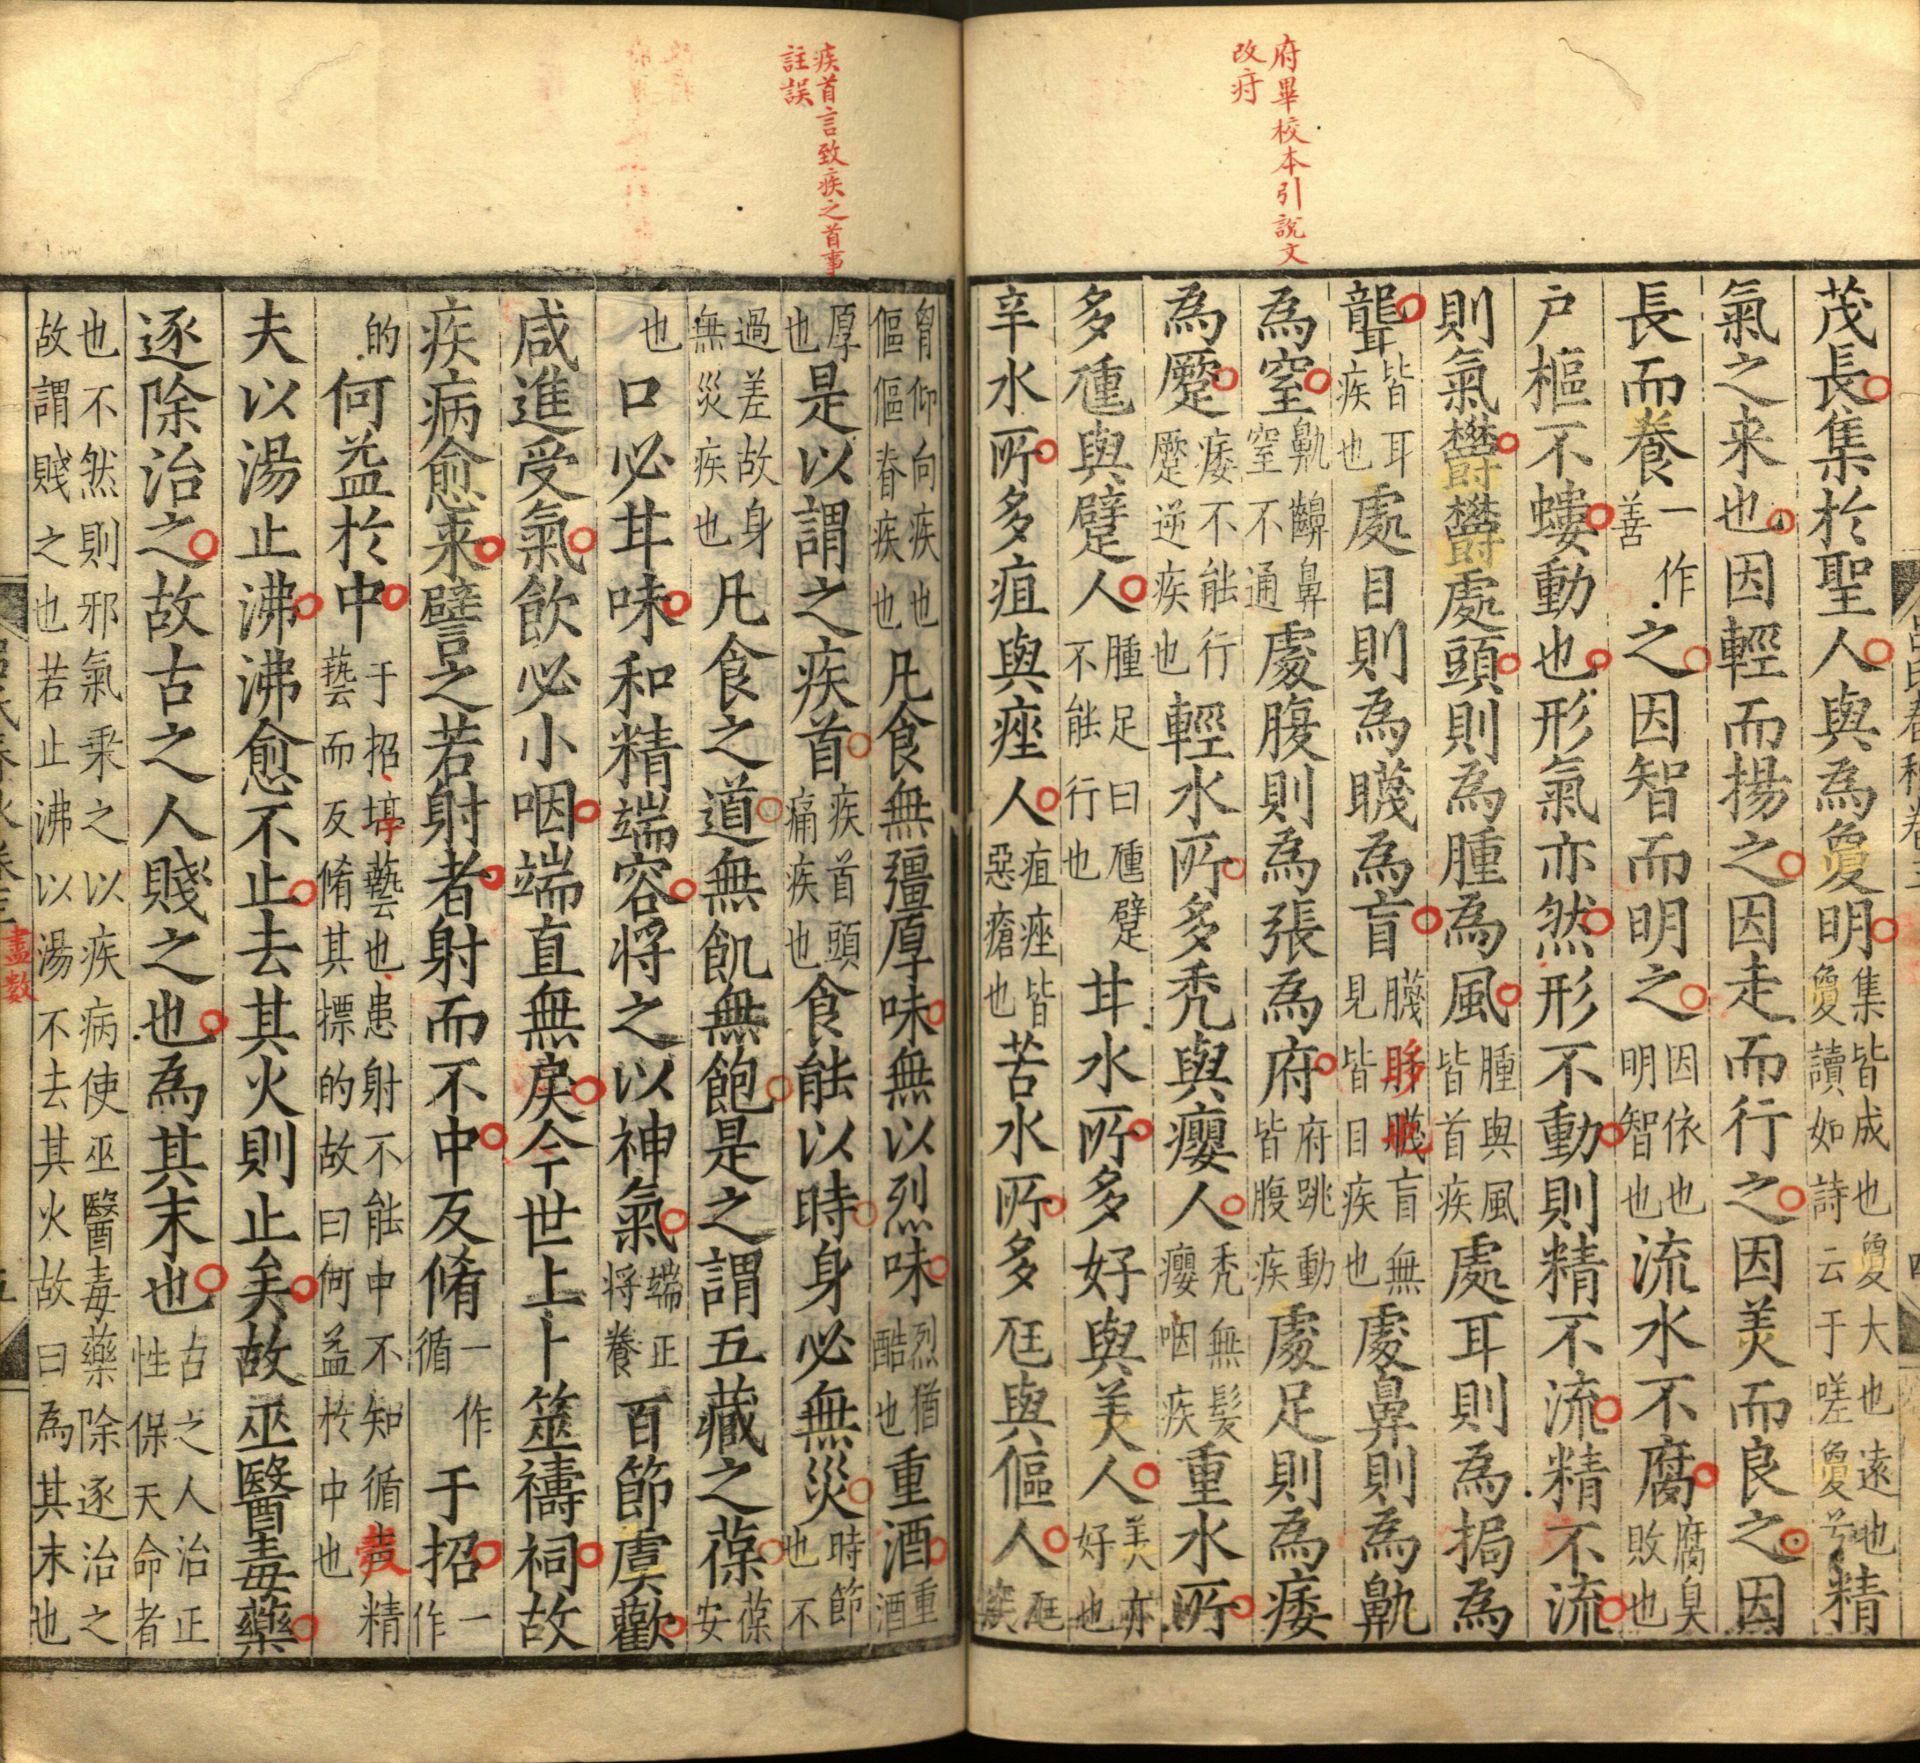 府畢校本引說文
改疛
茂長集於聖人與為敻明集皆成也敻大也遠也敻讀如詩云于嗟敻兮精
氣之来也因輕而揚之因走而行之因美而良之因
長而養一作善之因智而明之因依也明智也流水不腐腐臭敗也
户樞不螻動也形氣亦然形不動則精不流精不流
則氣欝欝處頭則為腫為風腫與風皆首疾處耳則為挶為
聾皆耳疾也處目則為䁾為盲䁾眵䁾也盲無見皆目疾也處鼻則為鼽
為窒鼽齆鼻窒不通處腹則為張為府府跳動皆腹疾處足則為痿
為蹷痿不能行蹷逆疾也輕水所多禿與癭人禿無髮癭咽疾重水所
多尰與躄人腫足曰尰躄不能行也甘水所多好與美人美亦好也
辛水所多疽與痤人疽痤皆惡瘡也苦水所多尫與傴人尫
疾首言致疾之首事
註誤
胷仰向疾也傴傴脊疾也凡食無彊厚味無以烈味烈猶酷也重酒重酒
厚也是以謂之疾首疾首頭痛疾也食能以時身必無災時節也不
過差故身無災疾也凡食之道無飢無飽是之謂五藏之葆葆安
也口必甘味和精端容將之以神氣端正將養百節虞歡
咸進受氣飲必小咽端直無戾今世上卜筮禱祠故
疾病愈来譬之若射者射而不中反脩一作循于招一作
的何益於中于招埻藝也患射不能中不知循彀精藝而反脩其摽的故曰何益於中也
夫以湯止沸沸愈不止去其火則止矣故巫醫毒藥
逐除治之故古之人賤之也為其末也古之人治正性保天命者
也不然則邪氣乗之以疾病使巫醫毒藥除逐治之
故謂賤之也若止沸以湯不去其火故曰為其末也
盡數